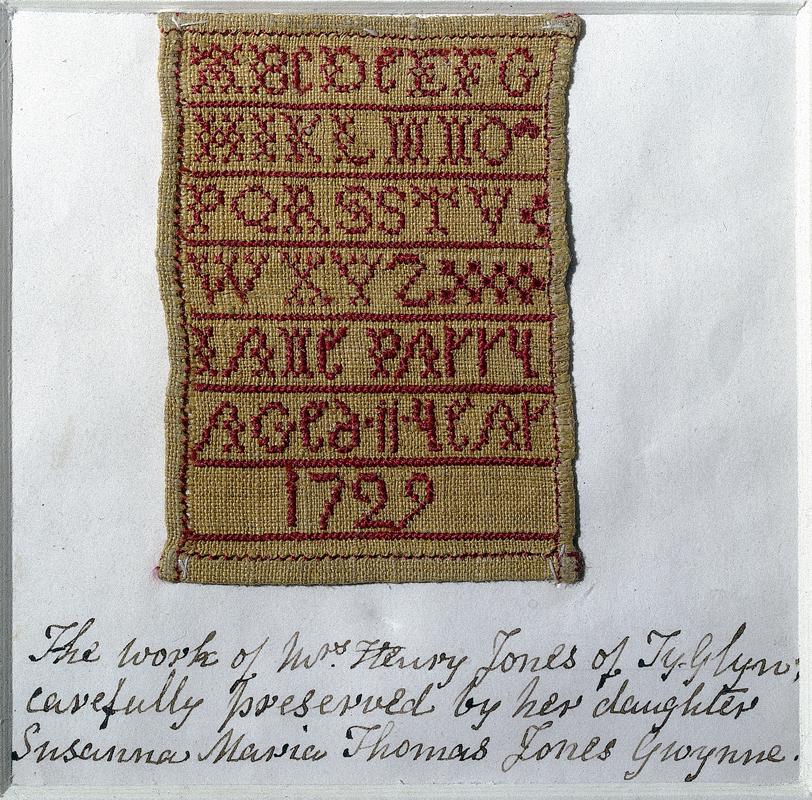 ABCDEEFG
HIKLMNO
PQRSSTV
WXYZ
IANE PARRY
AGED·11·YEAR
1729
The work of Mrs. Henry Jones of Ty-Glyn,
carefully preserved by her daughter
Susanna Maria Thomas Jones Gwynne.